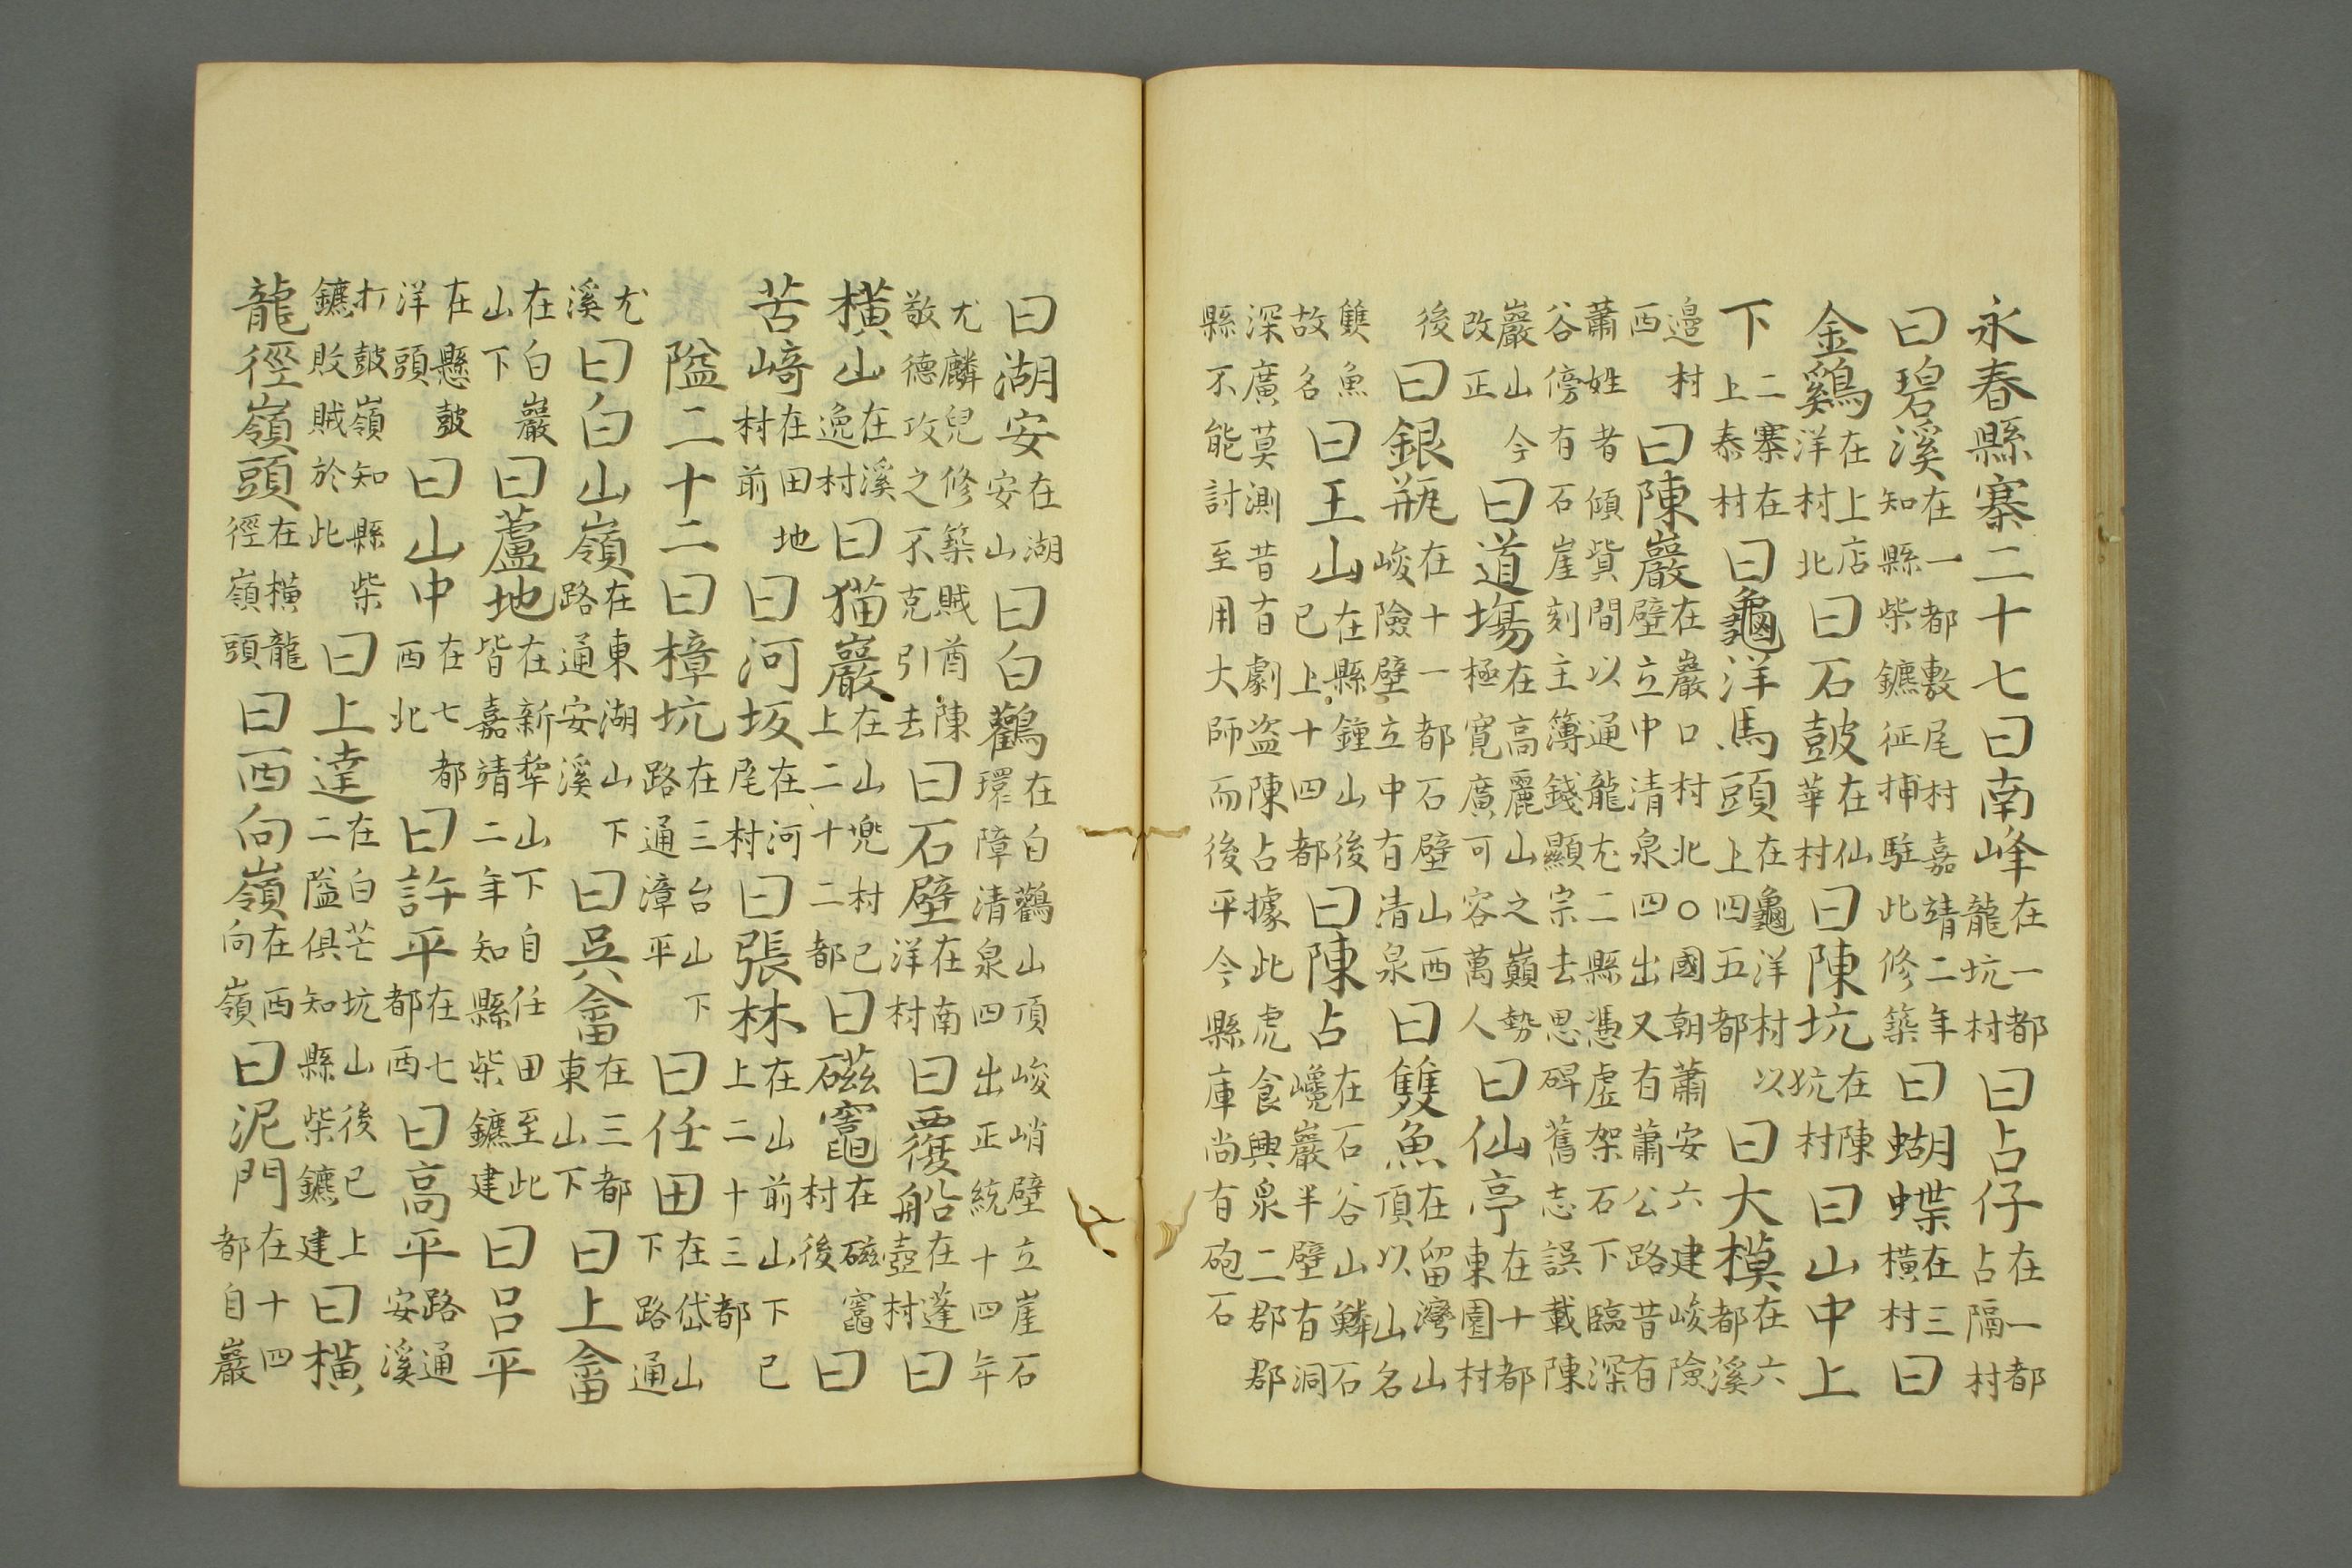 永春縣寨二十七曰南峰在一都龍坑村曰占仔在一都占隔村
曰碧溪在一都敷尾村嘉靖二年知縣柴鑣征捕駐此修築曰蝴蝶在三橫村曰
金鷄在上店洋村北曰石鼓在仙華村曰陳坑在陳坑村曰山中上
下二寨在上泰村曰龜洋馬頭在龜洋村以上四五都曰大模在六都溪
邉村西曰陳巖在巖口村北〇國朝蕭安六建峻險壁立中清泉四出又有蕭公路昔有
蕭姓者傾貲間以通龍尤二縣憑虛架石下臨深谷傍有石崖刻主簿錢顯宗去思碑舊志誤載陳
巖山今改正曰道塲在高麗山之巔勢極寬廣可容萬人曰仙亭在十都東園村
後曰銀瓶在十一都石壁山西峻險壁立中有清泉曰雙魚在留灣山頂以山名
雙魚故名曰王山在縣鐘山後已上十四都曰陳占在石谷山鱗石巉巖半壁有洞
深廣莫測昔有劇盜陳占據此虎食興泉二郡郡縣不能討至用大師而後平今縣庫尚有砲石
曰湖安在湖安山曰白鸛在白鸛山頂峻峭壁立崖石環障清泉四出正統十四年
尤麟兒修築賊酋陳敬德攻之不克引去曰石壁在南洋村曰覆船在蓬壺村曰
橫山在溪逸村曰猫巖在山兜村已上二十二都曰磁竈在磁竈村後曰
苦﨑在田地村前曰河坂在河尾村曰張林在山前山下已上二十三都
隘二十二曰樟坑在三台山下路通漳平曰任田在岱山下路通
尤溪曰白山嶺在東湖山下路通安溪曰吳畬在三都東山下曰上畬
在白巖山下曰蘆地在新犂山下自任田至此皆嘉靖二年知縣柴鑣建曰吕平
在懸鼓洋頭曰山中在七都西北曰許平在七都西曰高平路通安溪
打鼓嶺知縣柴鑣敗賊於此曰上達在白芒坑山後已上二隘俱知縣柴鑣建曰橫
龍徑嶺頭在橫龍徑嶺頭曰西向嶺在西向嶺曰泥門在十四都自巖